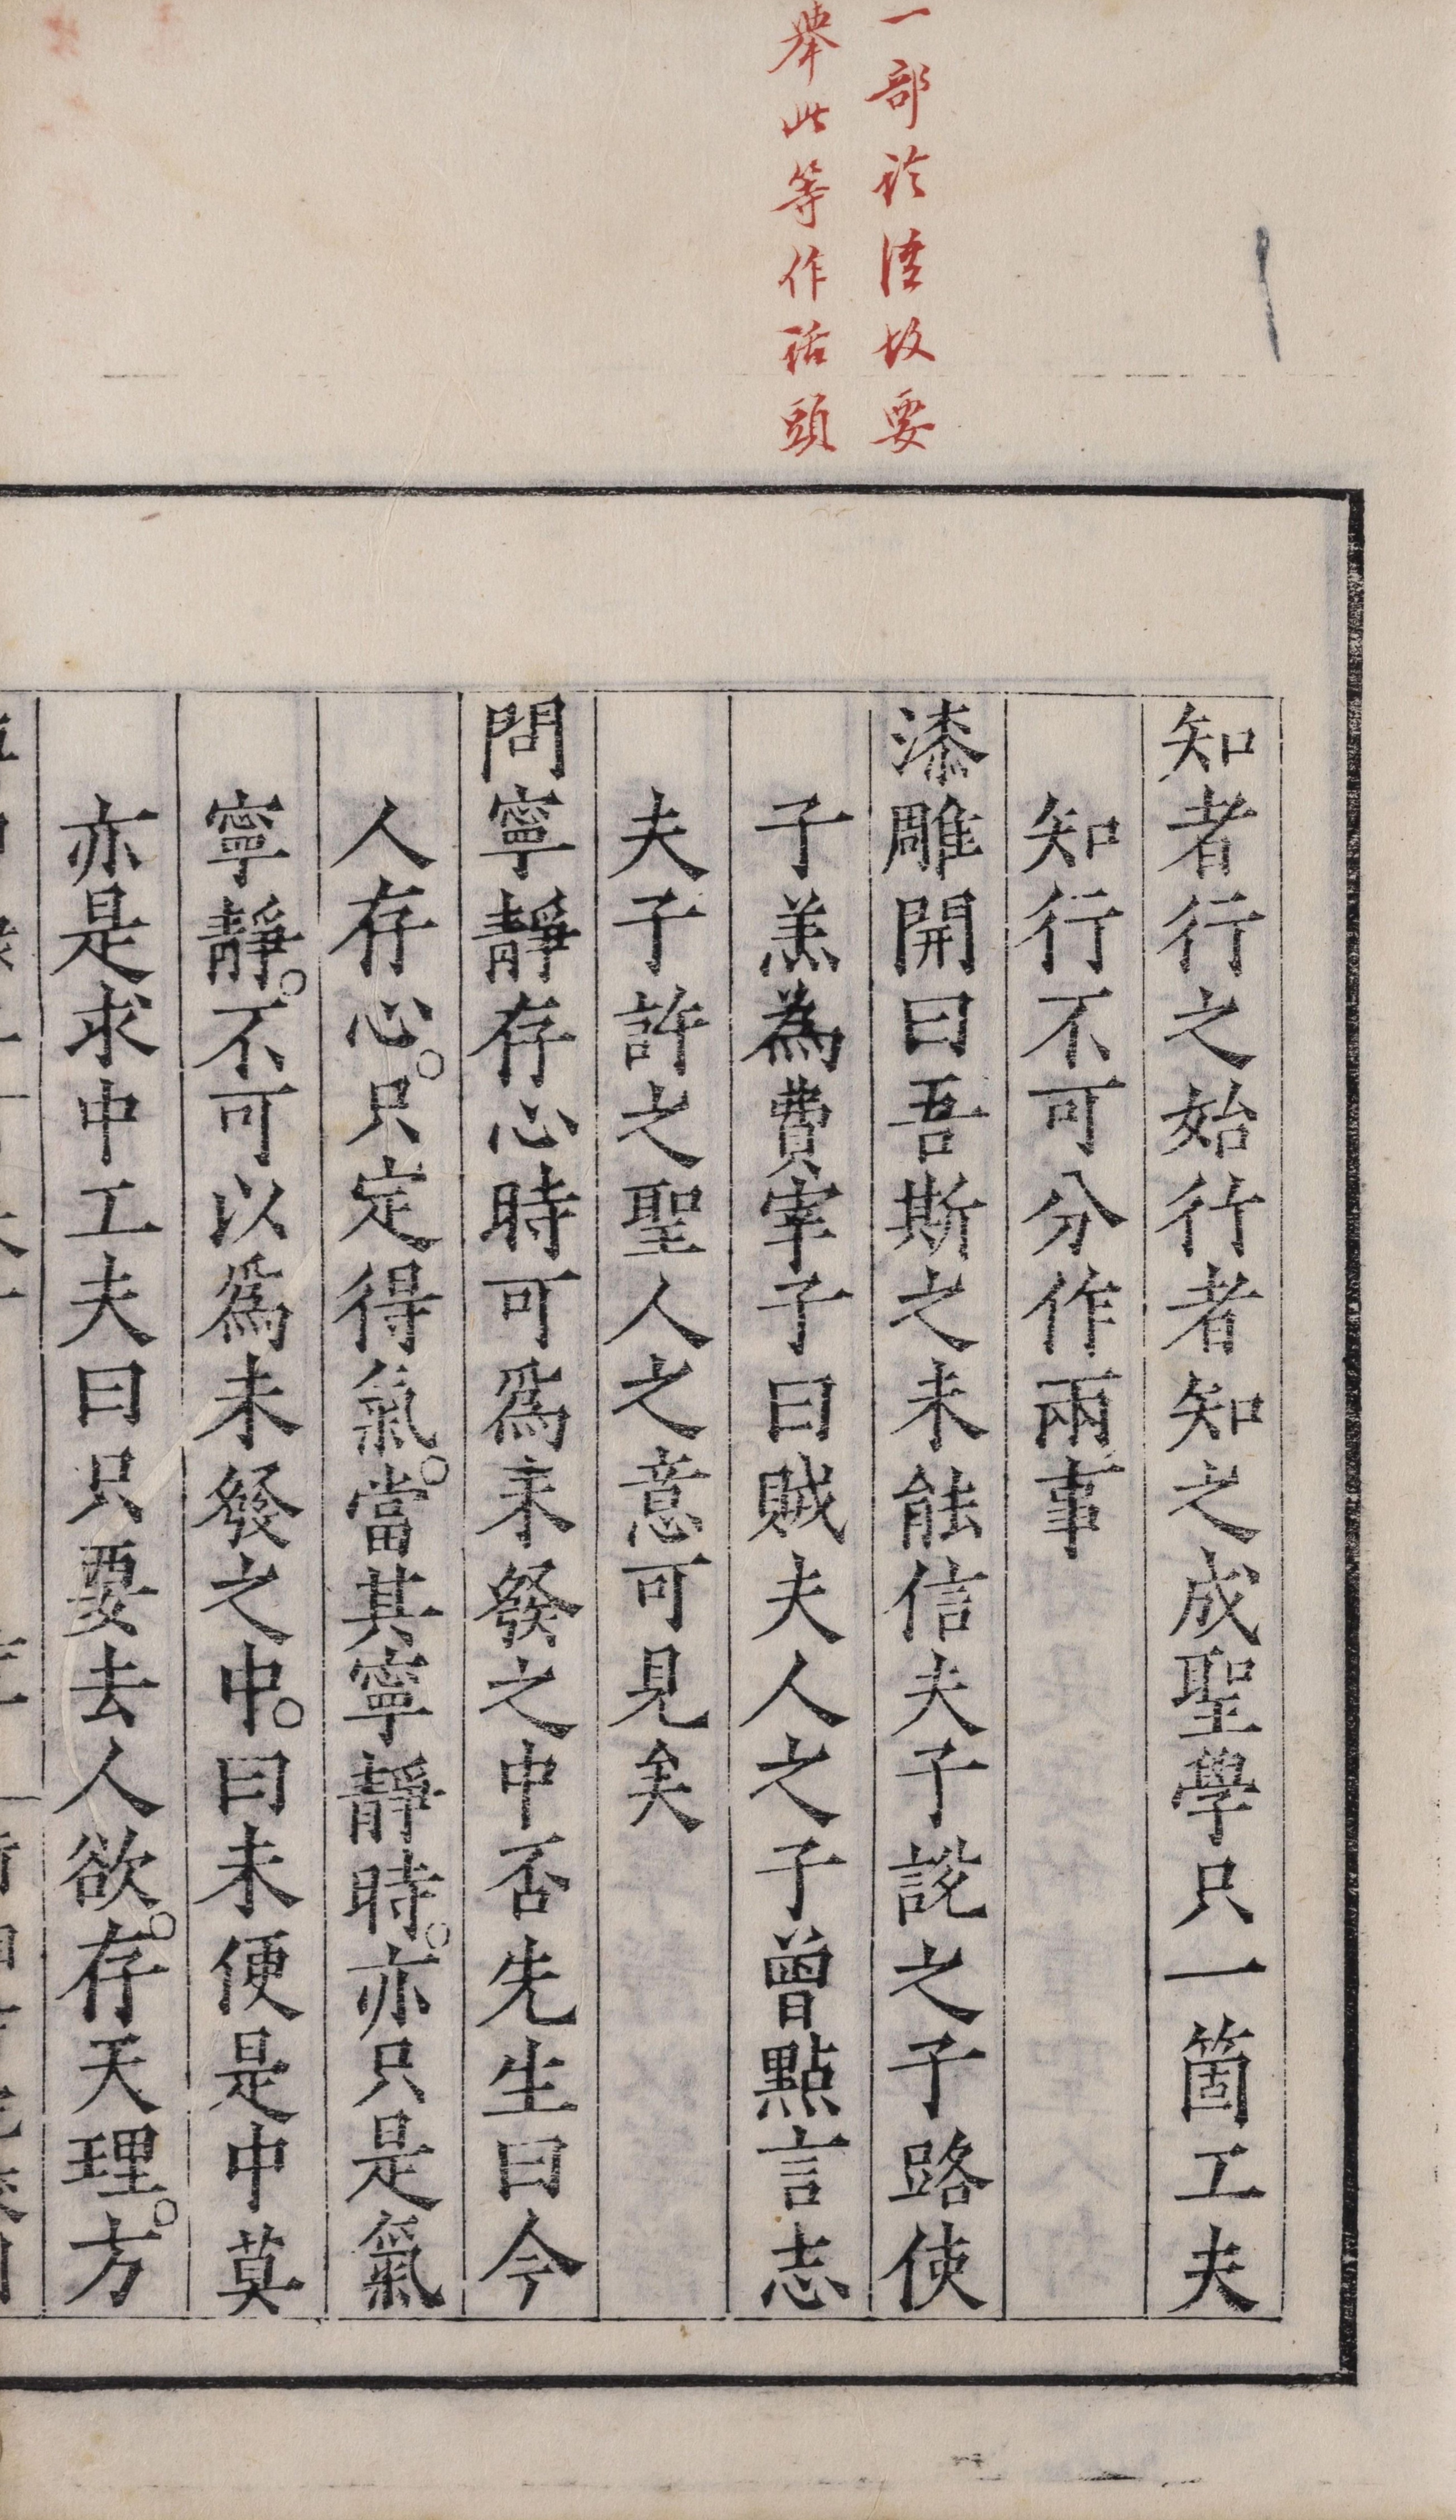 一部論語故要
舉此等作話頭
知者行之始行者知之成聖學只一箇工夫
知行不可分作兩事
漆雕開曰吾斯之未能信夫子說之子路使
子羔為費宰子曰賊夫人之子曾點言志
夫子許之聖人之意可見矣
問寧靜存心時可爲未發之中否先生曰今
人存心。只定得氣。當其寧靜時。亦只是氣
寧靜。不可以爲未發之中。曰未便是中莫
亦是求中工夫曰只要去人欲。存天理。方